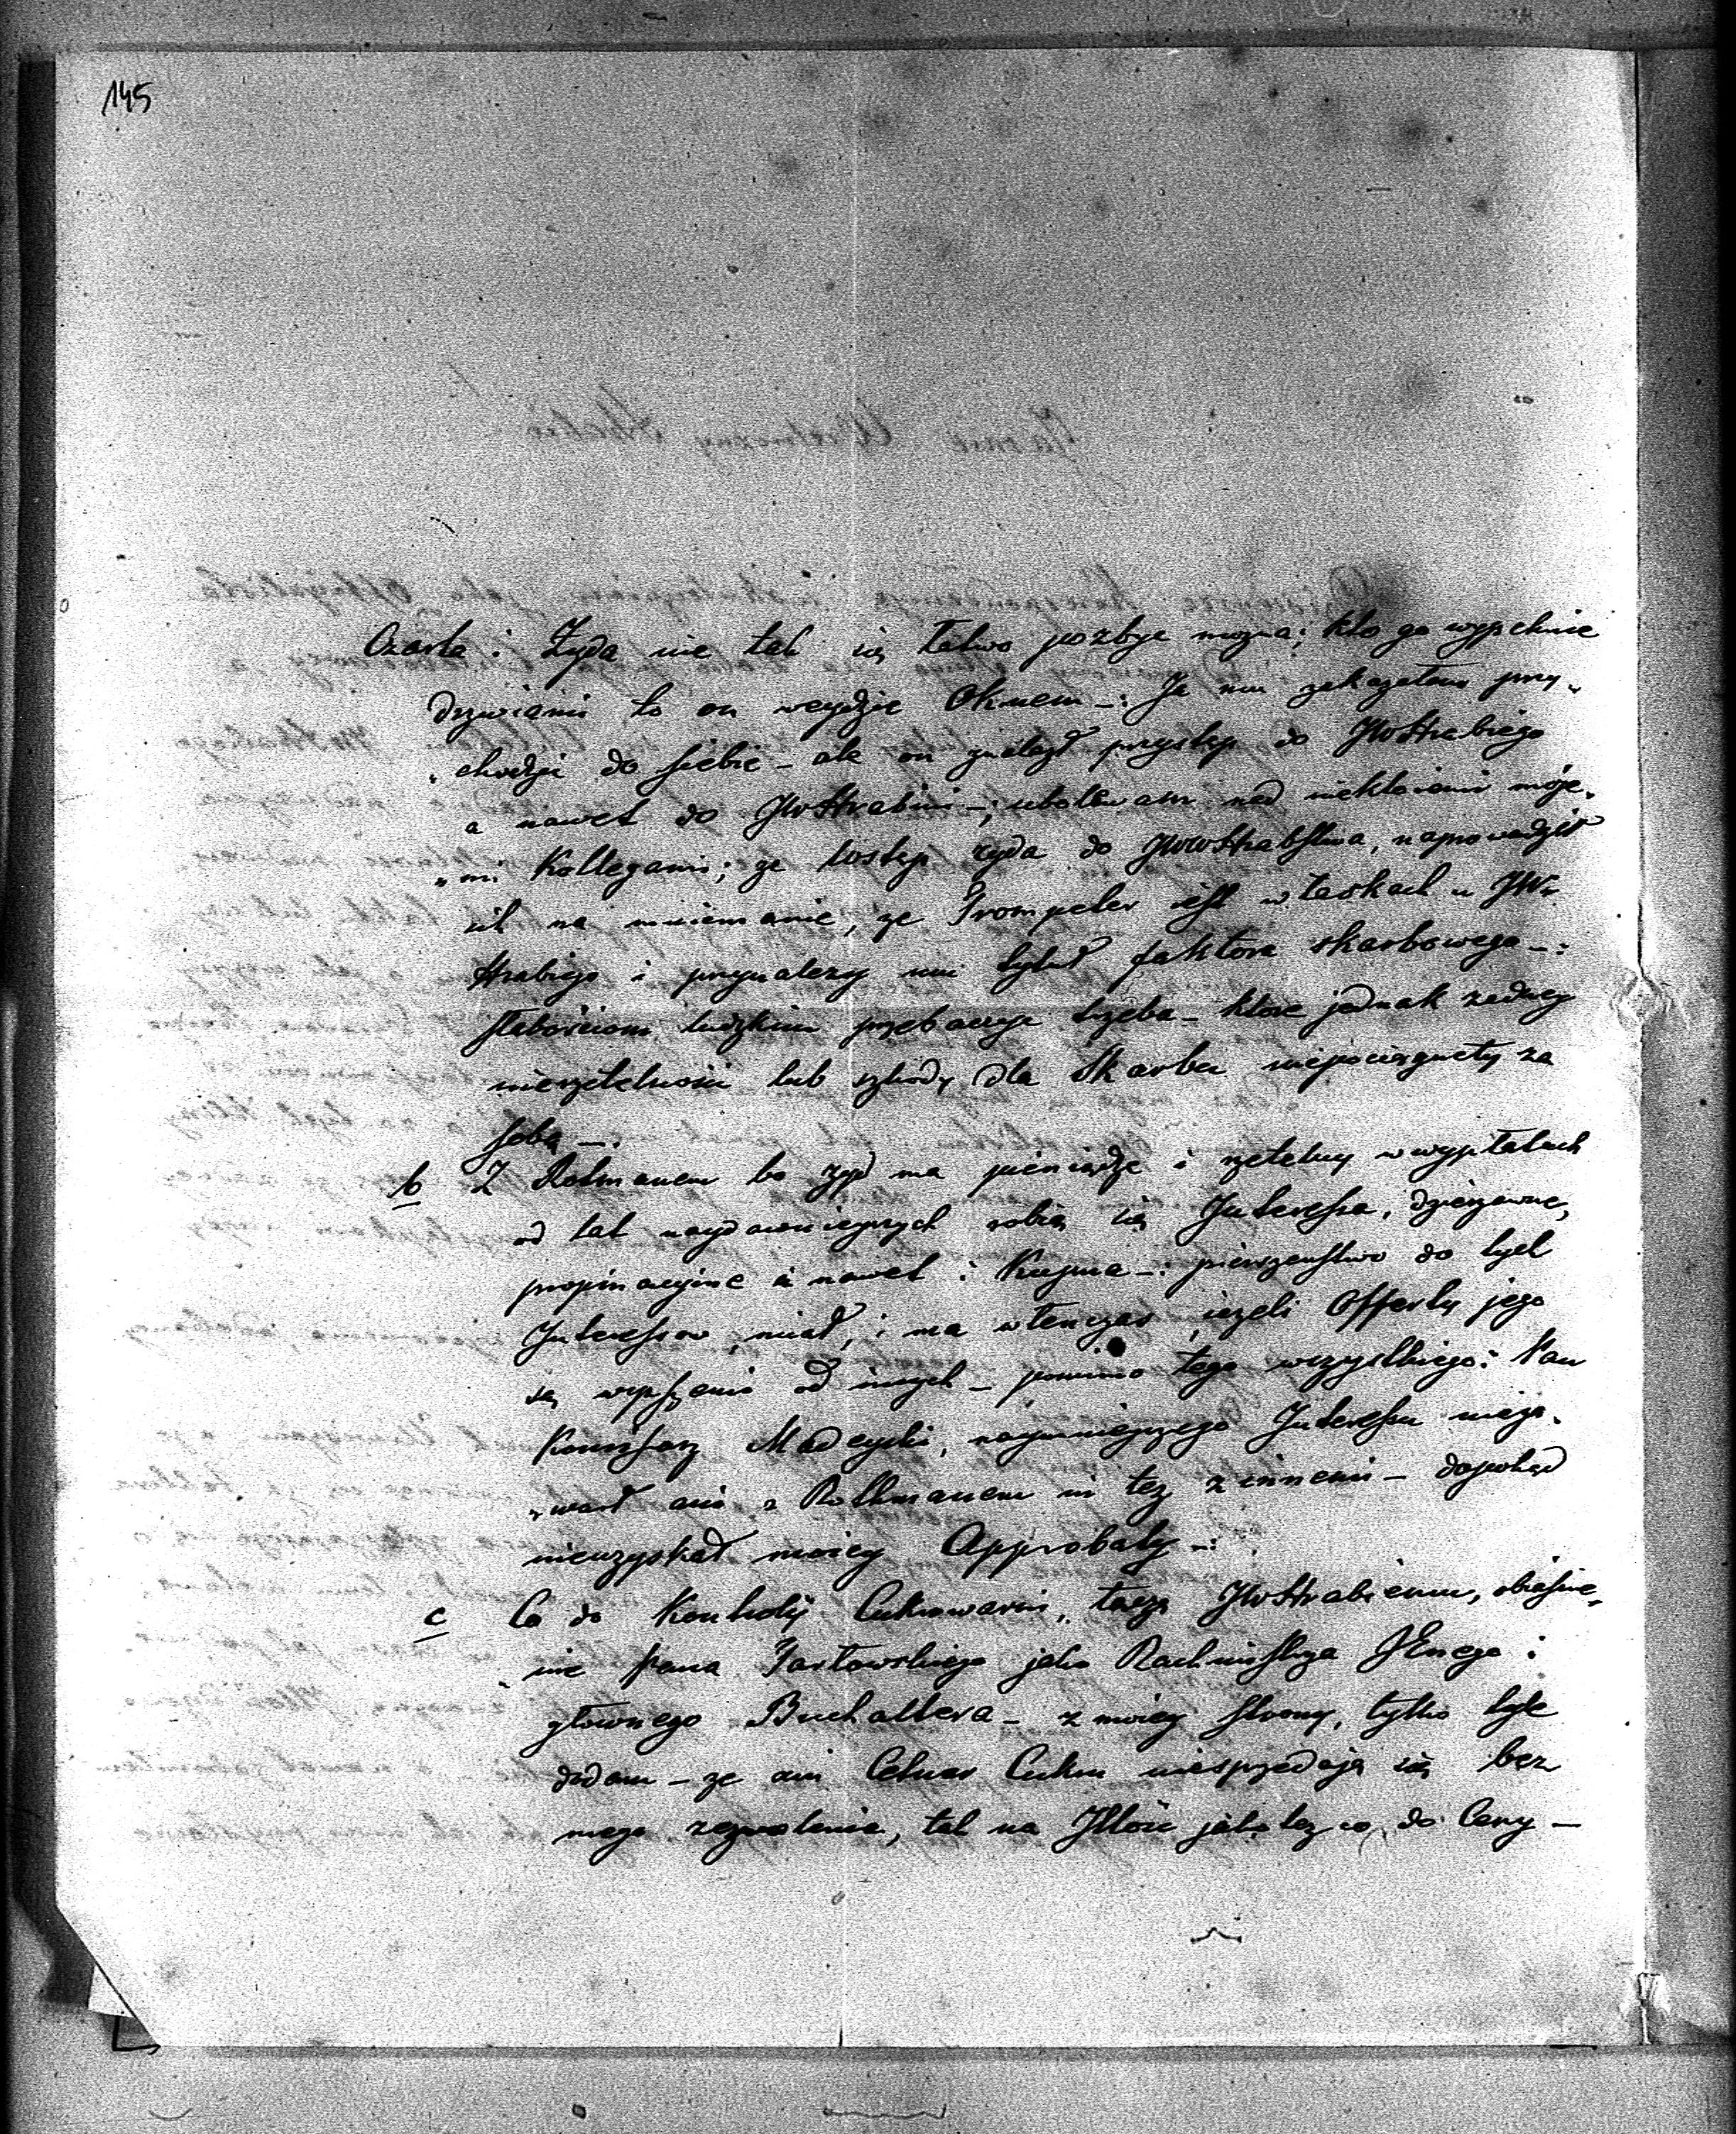 145
Czarta i Żyda nie tak się łatwo pozbyć można; kto go wypchnie
drzwiami to on weydzie Oknem –: Ja mu zakazałem przy„
„chodzić do siebie – ale on znalazł przystęp do JWHrabiego
a nawet do JWHrabini –; ubolewam nad niektóremi moje„
„mi Kollegami; że wstęp żyda do JWWHrabstwa, naprowadził
ich na mniemanie, że Trompeter jest w łaskach u JW
Hrabiego i przynależy mu tytuł faktora skarbowego –:
słabościom ludzkim przebaczyć trzeba – które jednak żadney
nierzetelności lub szkody dla Skarbu niepociągnęły za
sobą –.
b Z Rotmanem bo żyd ma pieniądze i rzetelny w wypłatach
od lat naydawnieyszych robią się Interessa, dzierżawne,
propinacyine a nawet i Kupna –: pierszeństwo do tych
Interessow miał, i ma wtenczas ieżeli Offerty jego
są wyższemi od innych – pomimo tego wszystkiego: Pan
Komissarz Madeyski, naymnieyszego Interessu nieza„
„warł ani z Rothmanem ni też z innemi – dopokąd
nieuzyskał moiey Approbaty –:
c Co do Kontroly Cukrowarni, łączę JWHrabiemu, obiaśnie„
„nie pana Tartowskiego jako Rachmistrza JEnego i
głównego Buchaltera – z moiey strony, tylko tyle
dodam – że ani Cetnar Cukru niesprzedają się bez
mego zezwolenia, tak na Jllość jako też co do Ceny –